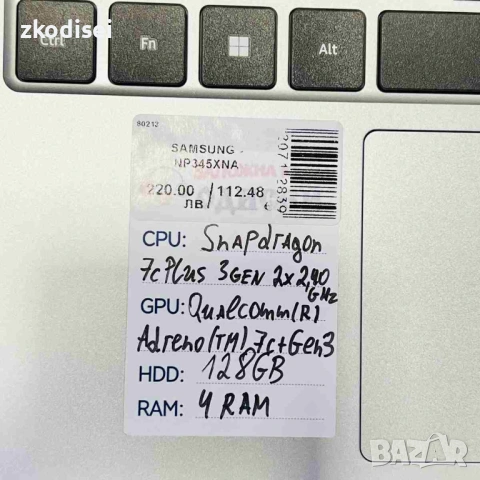 zkodisei
Ctrl Fn Alt
80212
SAMSUNG -
NP345XNA
ЗАЛОЖНА
220.00 / 112.48
ЛВ €
CPU: Snapdragon
7c Plus 3GEN 2x2,40
GHz
GPU: Qualcomm(R)
Adreno(TM) 7c+Gen3
HDD: 128GB
RAM: 4 RAM
BAZAR
bg